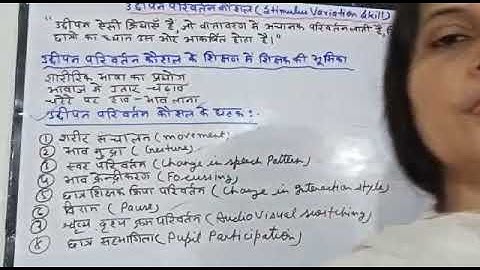 उद्दीपन परिवर्तन कौशल (Stimulus Variation Skill)
"उद्दीपन ऐसी क्रियाएँ हैं, जो वातावरण में अचानक परिवर्तन लाती हैं,
छात्रों का ध्यान उस ओर आकर्षित होता है।"
उद्दीपन परिवर्तन कौशल के शिक्षण में शिक्षक की भूमिका
शारीरिक भाषा का प्रयोग
आवाज में उतार-चढ़ाव
चेहरे पर हाव-भाव लाना
उद्दीपन परिवर्तन कौशल के घटक:-
① शरीर संचालन (movement)
② भाव मुद्रा (Gesture)
③ स्वर परिवर्तन (Change in speech Pattern)
④ भाव केन्द्रीकरण (Focussing)
⑤ छात्र शिक्षक क्रिया परिवर्तन (Change in Interaction style)
⑥ विराम (Pause)
⑦ श्रव्य दृश्य क्रम परिवर्तन (Audio Visual switching)
⑧ छात्र सहभागिता (Pupil Participation)